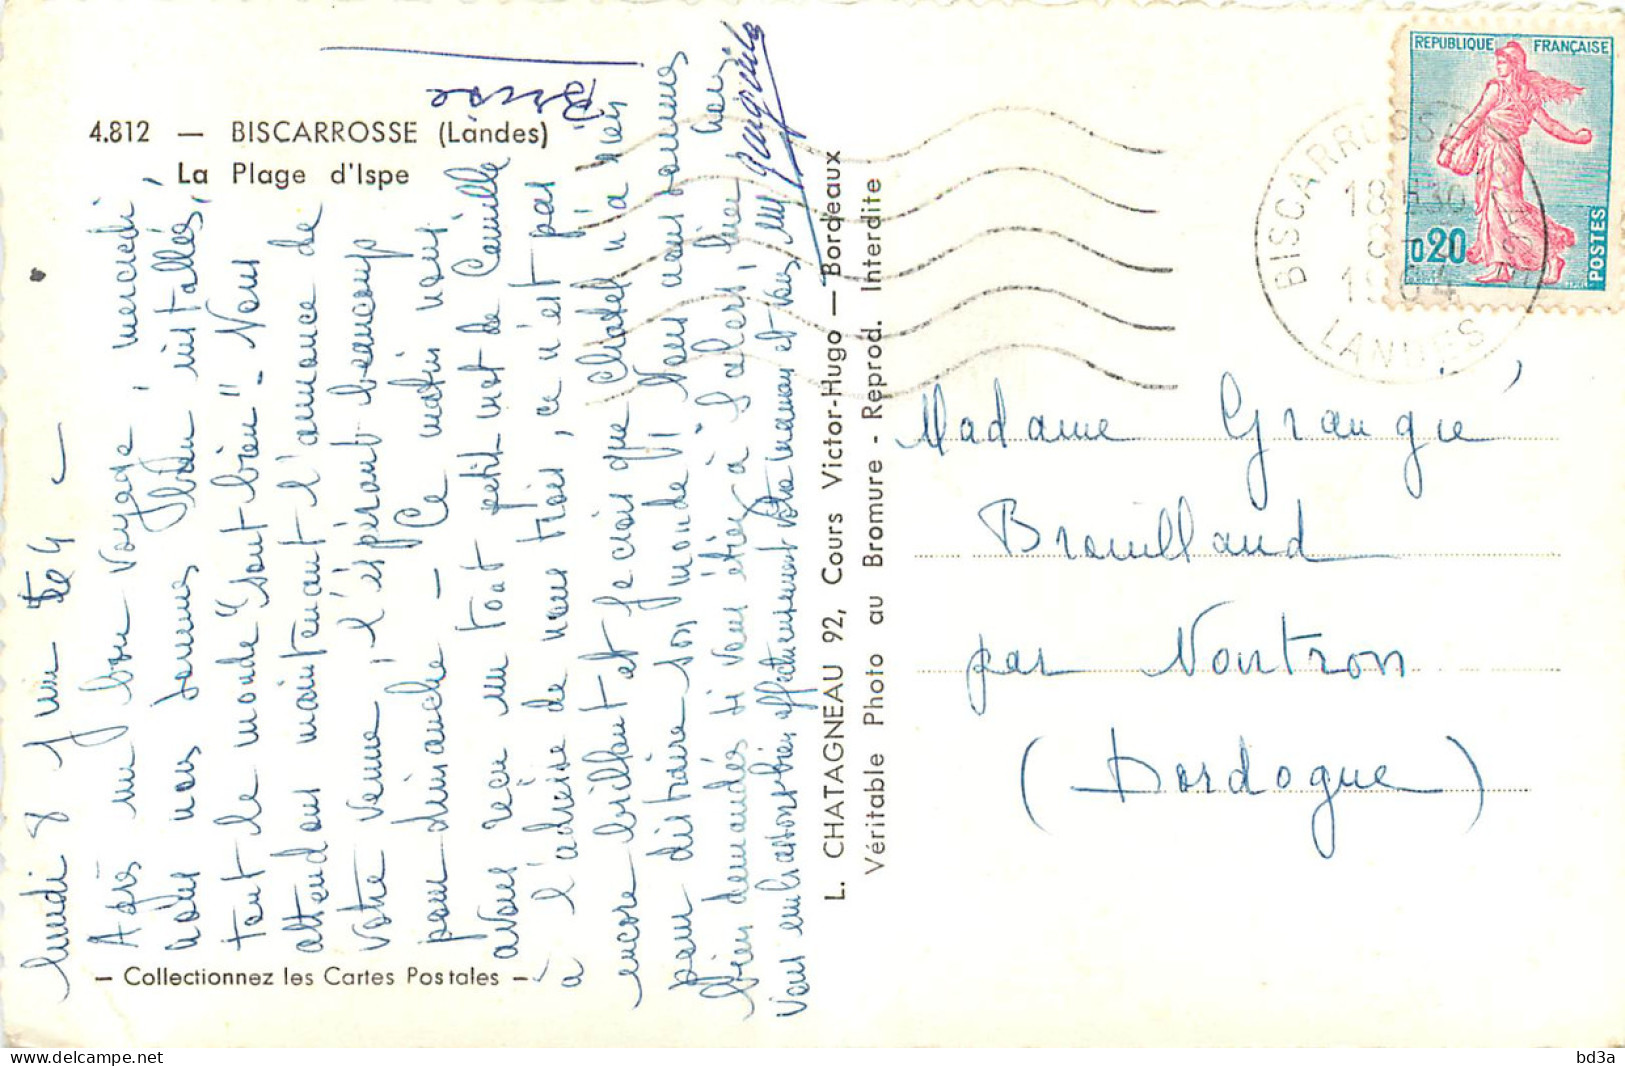 4.812 — BISCARROSSE (Landes)
La Plage d'Ispe
lundi 8 Juin 64 —
Après un bon voyage, mercredi,
nous nous sommes bien installés,
tout le monde "sont bien" - Nous
attendons maintenant l'annonce de
votre venue, l'espérant beaucoup
pour dimanche - Ce matin nous
avons reçu un tout petit mot de Camille
à l'adresse de nous trois, ce n'est pas
encore brillant et je crois que Chatel n'a rien
pour distraire son monde ! Nous nous sommes
bien demandés si vous étiez à Salers, hier
Vous embrassons bien affectueusement votre maman et vous
— Collectionnez les Cartes Postales —
L. CHATAGNEAU 92, Cours Victor-Hugo — Bordeaux
Véritable Photo au Bromure - Reprod. Interdite
REPUBLIQUE FRANÇAISE
0,20
POSTES
BISCARROSSE
18H30
LANDES
Madame Grangié
Brouillaud
par Nontron
(Dordogne)
delcampe.net
bd3a